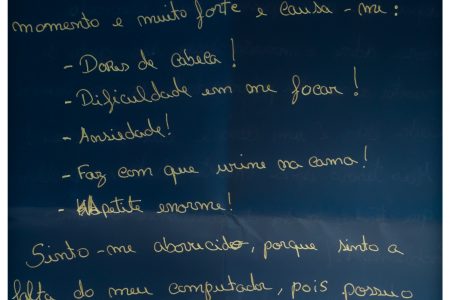 momento e muito forte e causa-me:
- Dores de cabeça!
- Dificuldade em me focar!
- Ansiedade!
- Faz com que urine na cama!
- Apetite enorme!
Sinto-me aborrecido, porque sinto a
falta do meu computador, pois possuo